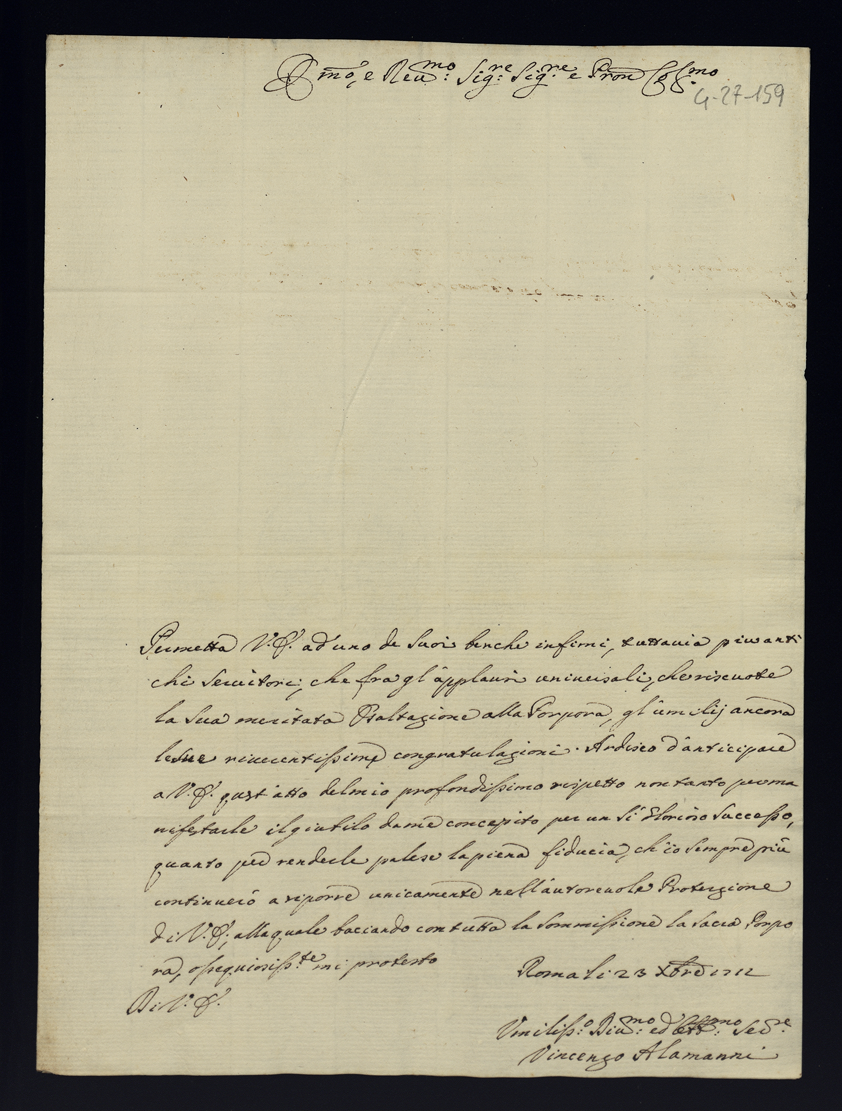 Em̃o, e Reu:mo Sig:re Sig:re e Pron̄ Col:mo
G-27-159
Permetta V.E. ad'uno de Suoi benche infimi, tuttauia piu anti
chi Seruitori, che fra gl'applausi uniuersali, che riscuote
la Sua meritata Esaltazione alla Porpora, gl'umilij ancora
le sue riuerentissime congratulazioni. Ardisco d'anticipare
a V.E. quest'atto del mio profondissimo rispetto non tanto per ma
nifestarle il giubilo da me concepito per un Si Glorioso Successo,
quanto per renderle palese la piena fiducia, ch'io sempre più
continuerò a riporre unicamente nell'autoreuole Protezzione
di V.E., alla quale baciando con tutta la Sommissione la Sacra Porpo
ra, ossequiosiss:te mi protesto
Roma li 23 Xbre 1712
Di V.E.
Vmiliss:o Diu:mo ed Obb:mo Se:re
Vincenzo Alamanni